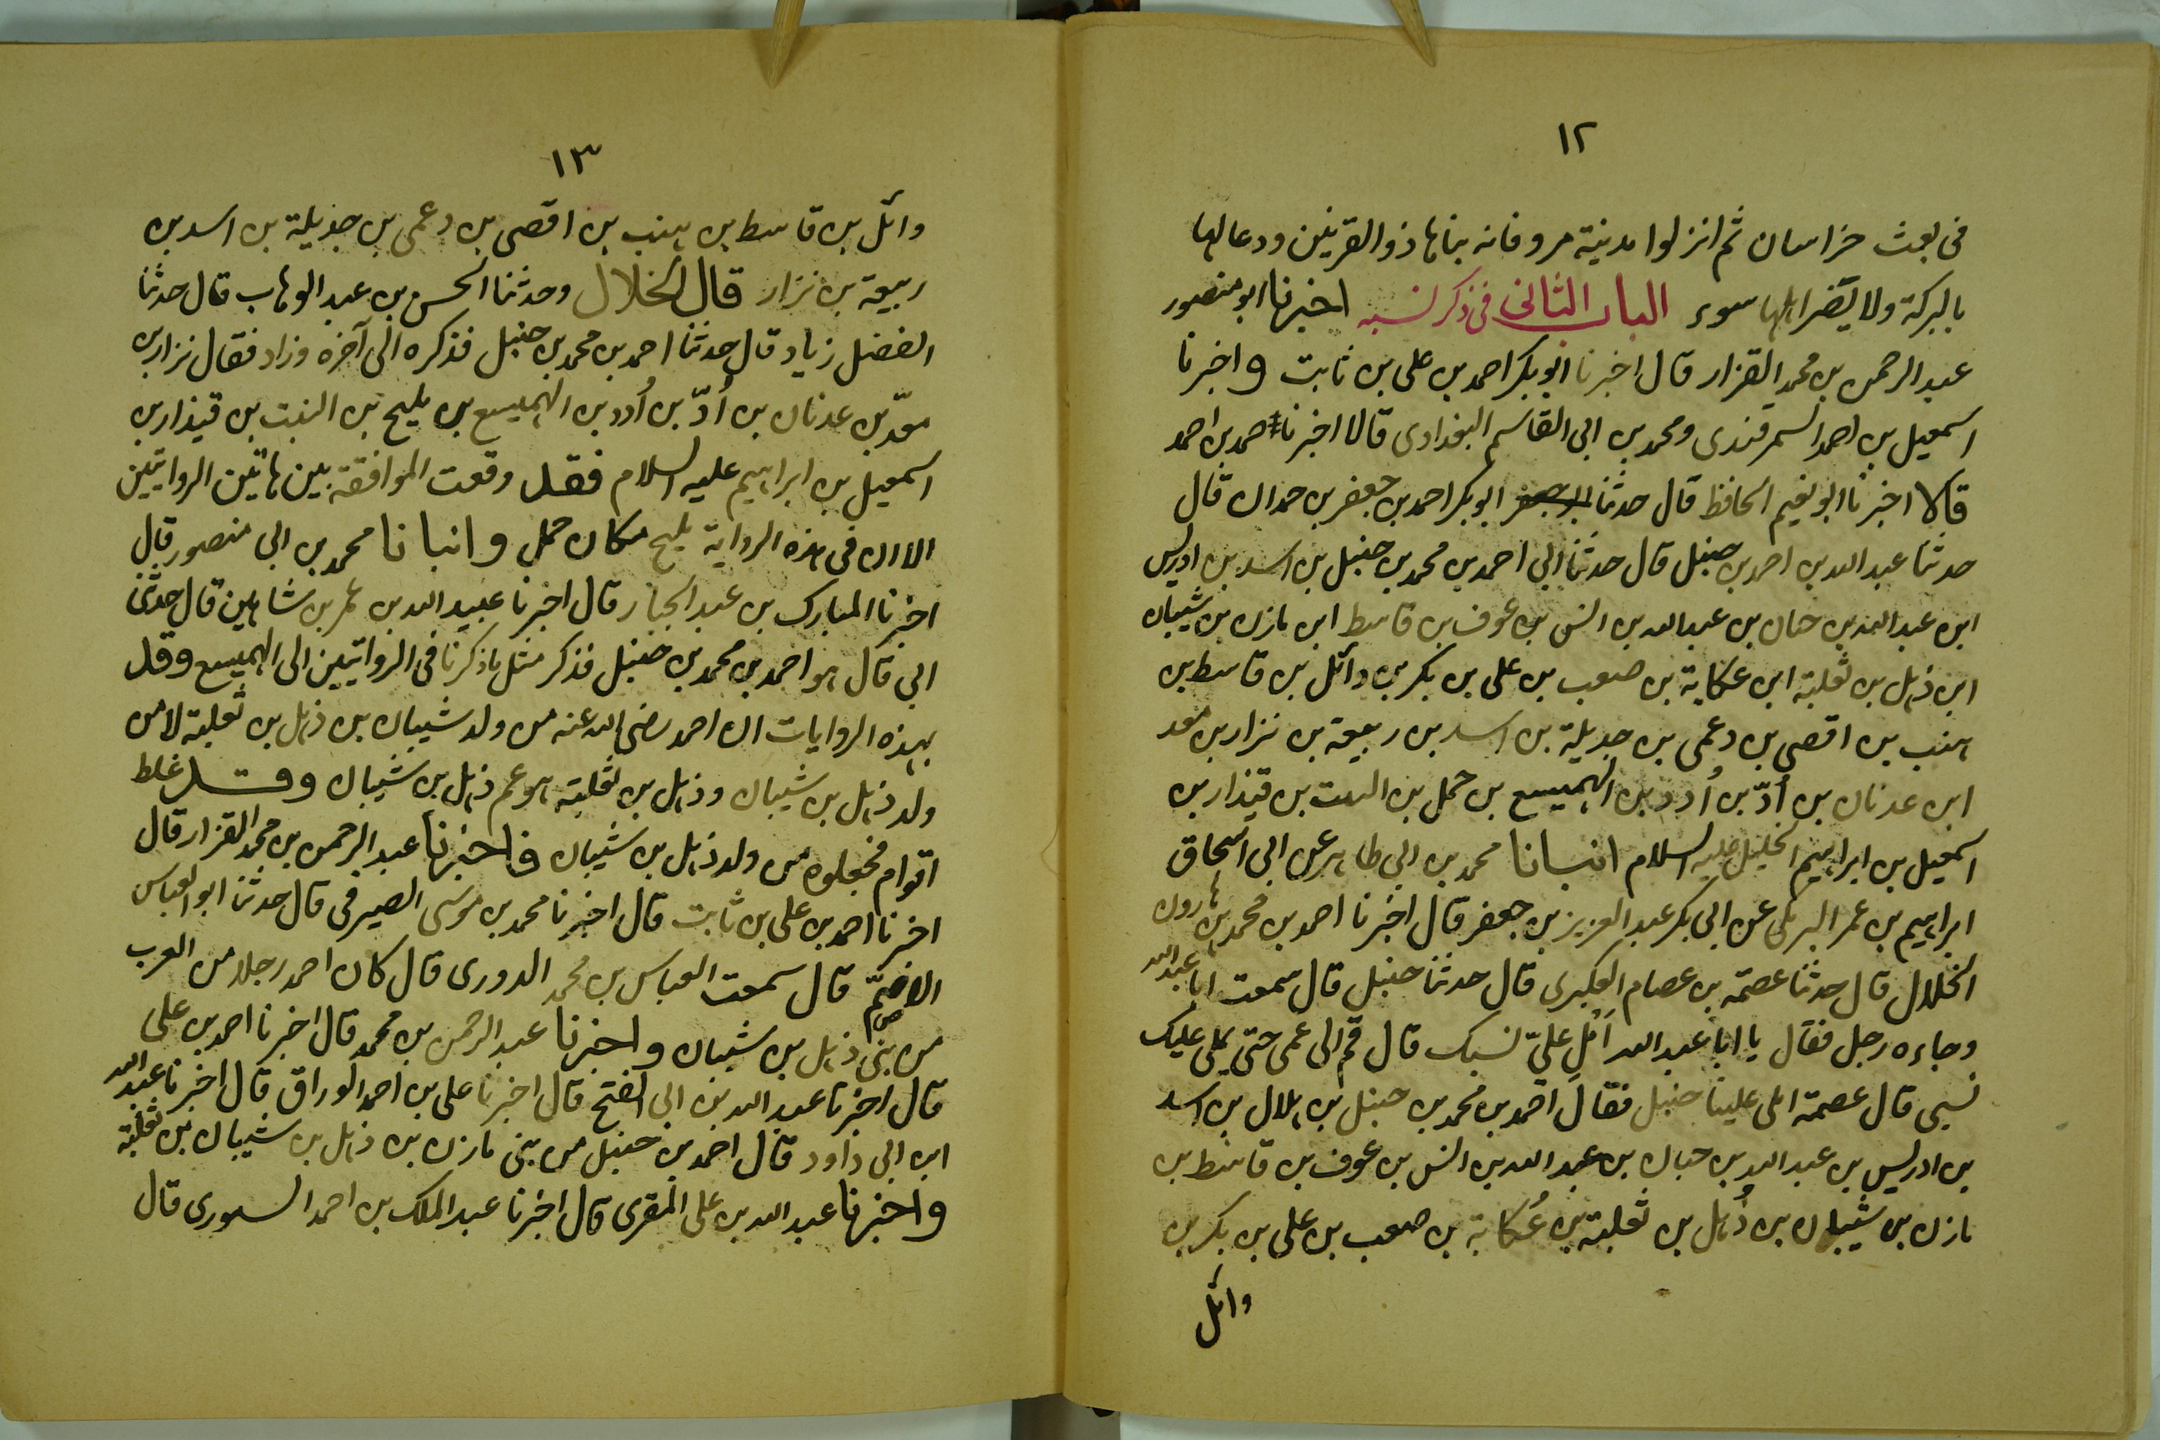 ١٢
فى بعث خراسان ثم انزلوا مدينة مرو فانه بناها ذو القرنين ودعا لها
بالبركة ولا يضر اهلها سوء الباب الثانى فى ذكر نسبه اخبرنا ابو منصور
عبد الرحمن بن محمد القزار قال اخبرنا ابو بكر احمد بن على بن ثابت واخبرنا
اسمعيل بن احمد السمرقندى ومحمد بن ابى القاسم البغدادى قالا اخبرنا حمد بن احمد
قالا اخبرنا ابو نعيم الحافظ قال حدثنا ابو بكر احمد بن جعفر بن حمدان قال
حدثنا عبد الله بن احمد بن حنبل قال حدثنا ابى احمد بن محمد بن حنبل بن اسد بن ادريس
ابن عبد الله بن حيان بن عبد الله بن انس بن عوف بن قاسط ابن مازن بن شيبان
ابن ذهل بن ثعلبة ابن عكاية بن صعب بن على بن بكر بن وائل بن قاسط بن
هنب بن اقصى بن دعمى بن جديلة بن اسد بن ربيعة بن نزار بن معد
ابن عدنان بن أدّ بن أدد بن الهميسع بن حمل بن النبت بن قيذار بن
اسمعيل بن ابراهيم الخليل عليه السلام انبانا محمد بن ابى طاهر عن ابى اسحاق
ابراهيم بن عمر البرمكى عن ابى بكر عبد العزيز بن جعفر قال اخبرنا احمد بن محمد بن هارون
الخلال قال حدثنا عصمة بن عصام العكبرى قال حدثنا حنبل قال سمعت ابا عبد الله
وجاءه رجل فقال يا ابا عبد الله اَمْلِ علىّ نسبك قال قم الى عمى حتى يملى عليك
نسبى قال عصمة املى علينا حنبل فقال احمد بن محمد بن حنبل بن هلال بن اسد
بن ادريس بن عبد الله بن حيان بن عبد الله بن انس بن عوف بن قاسط بن
مازن بن شيبان بن ذُهل بن ثعلبة بن عُكابة بن صعب بن على بن بكر بن
وائل
١٣
وائل بن قاسط بن هنب بن اقصى بن دعمى بن جديلة بن اسد بن
ربيعة بن نزار قال الخلال وحدثنا الحسن بن عبد الوهاب قال حدثنا
الفضل زياد قال حدثنا احمد بن محمد بن حنبل فذكره الى آخره وزاد فقال نزار بن
معدّ بن عدنان بن أدّ بن أدد بن الهميسع بن يليح بن النبت بن قيذار بن
اسمعيل بن ابراهيم عليه السلام فقد وقعت الموافقة بين هاتين الروايتين
الا ان فى هذه الرواية يليح مكان حمل وانبانا محمد بن ابى منصور قال
اخبرنا المبارك بن عبد الجبار قال اخبرنا عبيد الله بن عمر بن شاهين قال حدثنى
ابى قال هو احمد بن محمد بن حنبل فذكر مثل ماذكرنا فى الروايتين الى الهميسع وقد
بهذه الروايات ان احمد رضى الله عنه من ولد شيبان بن ذهل بن ثعلبة لا من
ولد ذهل بن شيبان وذهل بن ثعلبة هو عم ذهل بن شيبان وقد غلط
اقوام فجعلوه من ولد ذهل بن شيبان فاخبرنا عبد الرحمن بن محمد القزار قال
اخبرنا احمد بن على بن ثابت قال اخبرنا محمد بن موسى الصيرفى قال حدثنا ابو العباس
الاصمّ قال سمعت العباس بن محمد الدورى قال كان احمد رجلا من العرب
من بنى ذهل بن شيبان واخبرنا عبد الرحمن بن محمد قال اخبرنا احمد بن على
قال اخبرنا عبد الله بن ابى الفتح قال اخبرنا على بن احمد الوراق قال اخبرنا عبد الله
ابن ابى داود قال احمد بن حنبل من بنى مازن بن ذهل بن شيبان بن ثعلبة
واخبرنا عبد الله بن على المقرى قال اخبرنا عبد الملك بن احمد السيورى قال